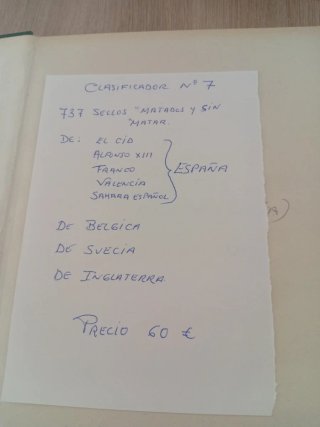 CLASIFICADOR Nº 7
737 SELLOS "MATADOS Y SIN
"MATAR.
DE: EL CID
ALFONSO XIII
FRANCO
VALENCIA
SAHARA ESPAÑOL
ESPAÑA
DE BELGICA
DE SUECIA
DE INGLATERRA.
PRECIO 60 €